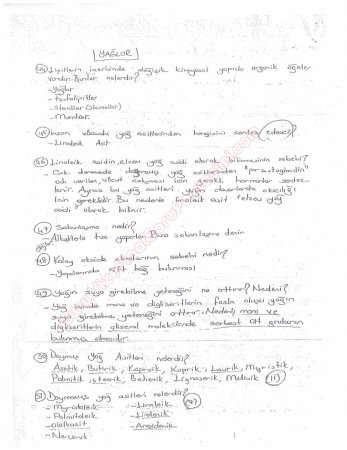 YAĞLAR
44) Lipitlerin içerisinde değişik kimyasal yapıda organik öğeler
vardır. Bunlar nelerdir?
- Yağlar
- Fosfolipitler
- Steroller (steroidler)
- Mumlar.
45) İnsan vücudu yağ asitlerinden hangisini sentez edemez?
- Linoleik Asit
46) Linoleik asidin, elzem yağ asidi olarak bilinmesinin sebebi?
- Çok derecede doymamış yağ asitlerinden "prostaglandin"
adı verilen, vücut çalışması için gerekli hormonlar sentez-
lenir. Ayrıca bu yağ asitleri yavru akıcılığı
için gereklidir. Bu nedenle linoleik asit "elzem yağ
asidi" olarak bilinir.
47) Sabunlaşma nedir?
- Alkalilerle tuz yaparlar. Buna sabunlaşma denir
48) Kolay okside olmalarının sebebi nedir?
- Yapılarında çift bağ bulunması
49) Yağın suya girebilme yeteneğini ne arttırır? Nedeni?
- Yağ içinde mono ve digliseritlerin fazla oluşu yağın
suya girebilme yeteneğini arttırır. Nedeni; mono ve
digliseritlerin gliserol molekülünde serbest OH grubunun
bulunmuş olmasıdır.
50) Doymuş Yağ Asitleri nelerdir?
Asetik, Bütirik, Kaproik, Kaprilik, Laurik, Myristik,
Palmitik, stearik, Behenik, Lignoserik, (11)
51) Doymamış yağ asitleri nelerdir? (7)
- Myristoleik - Linoleik
- Palmitoleik - Linolenik
- Oleikasit - Araşidonik
- Nervonik